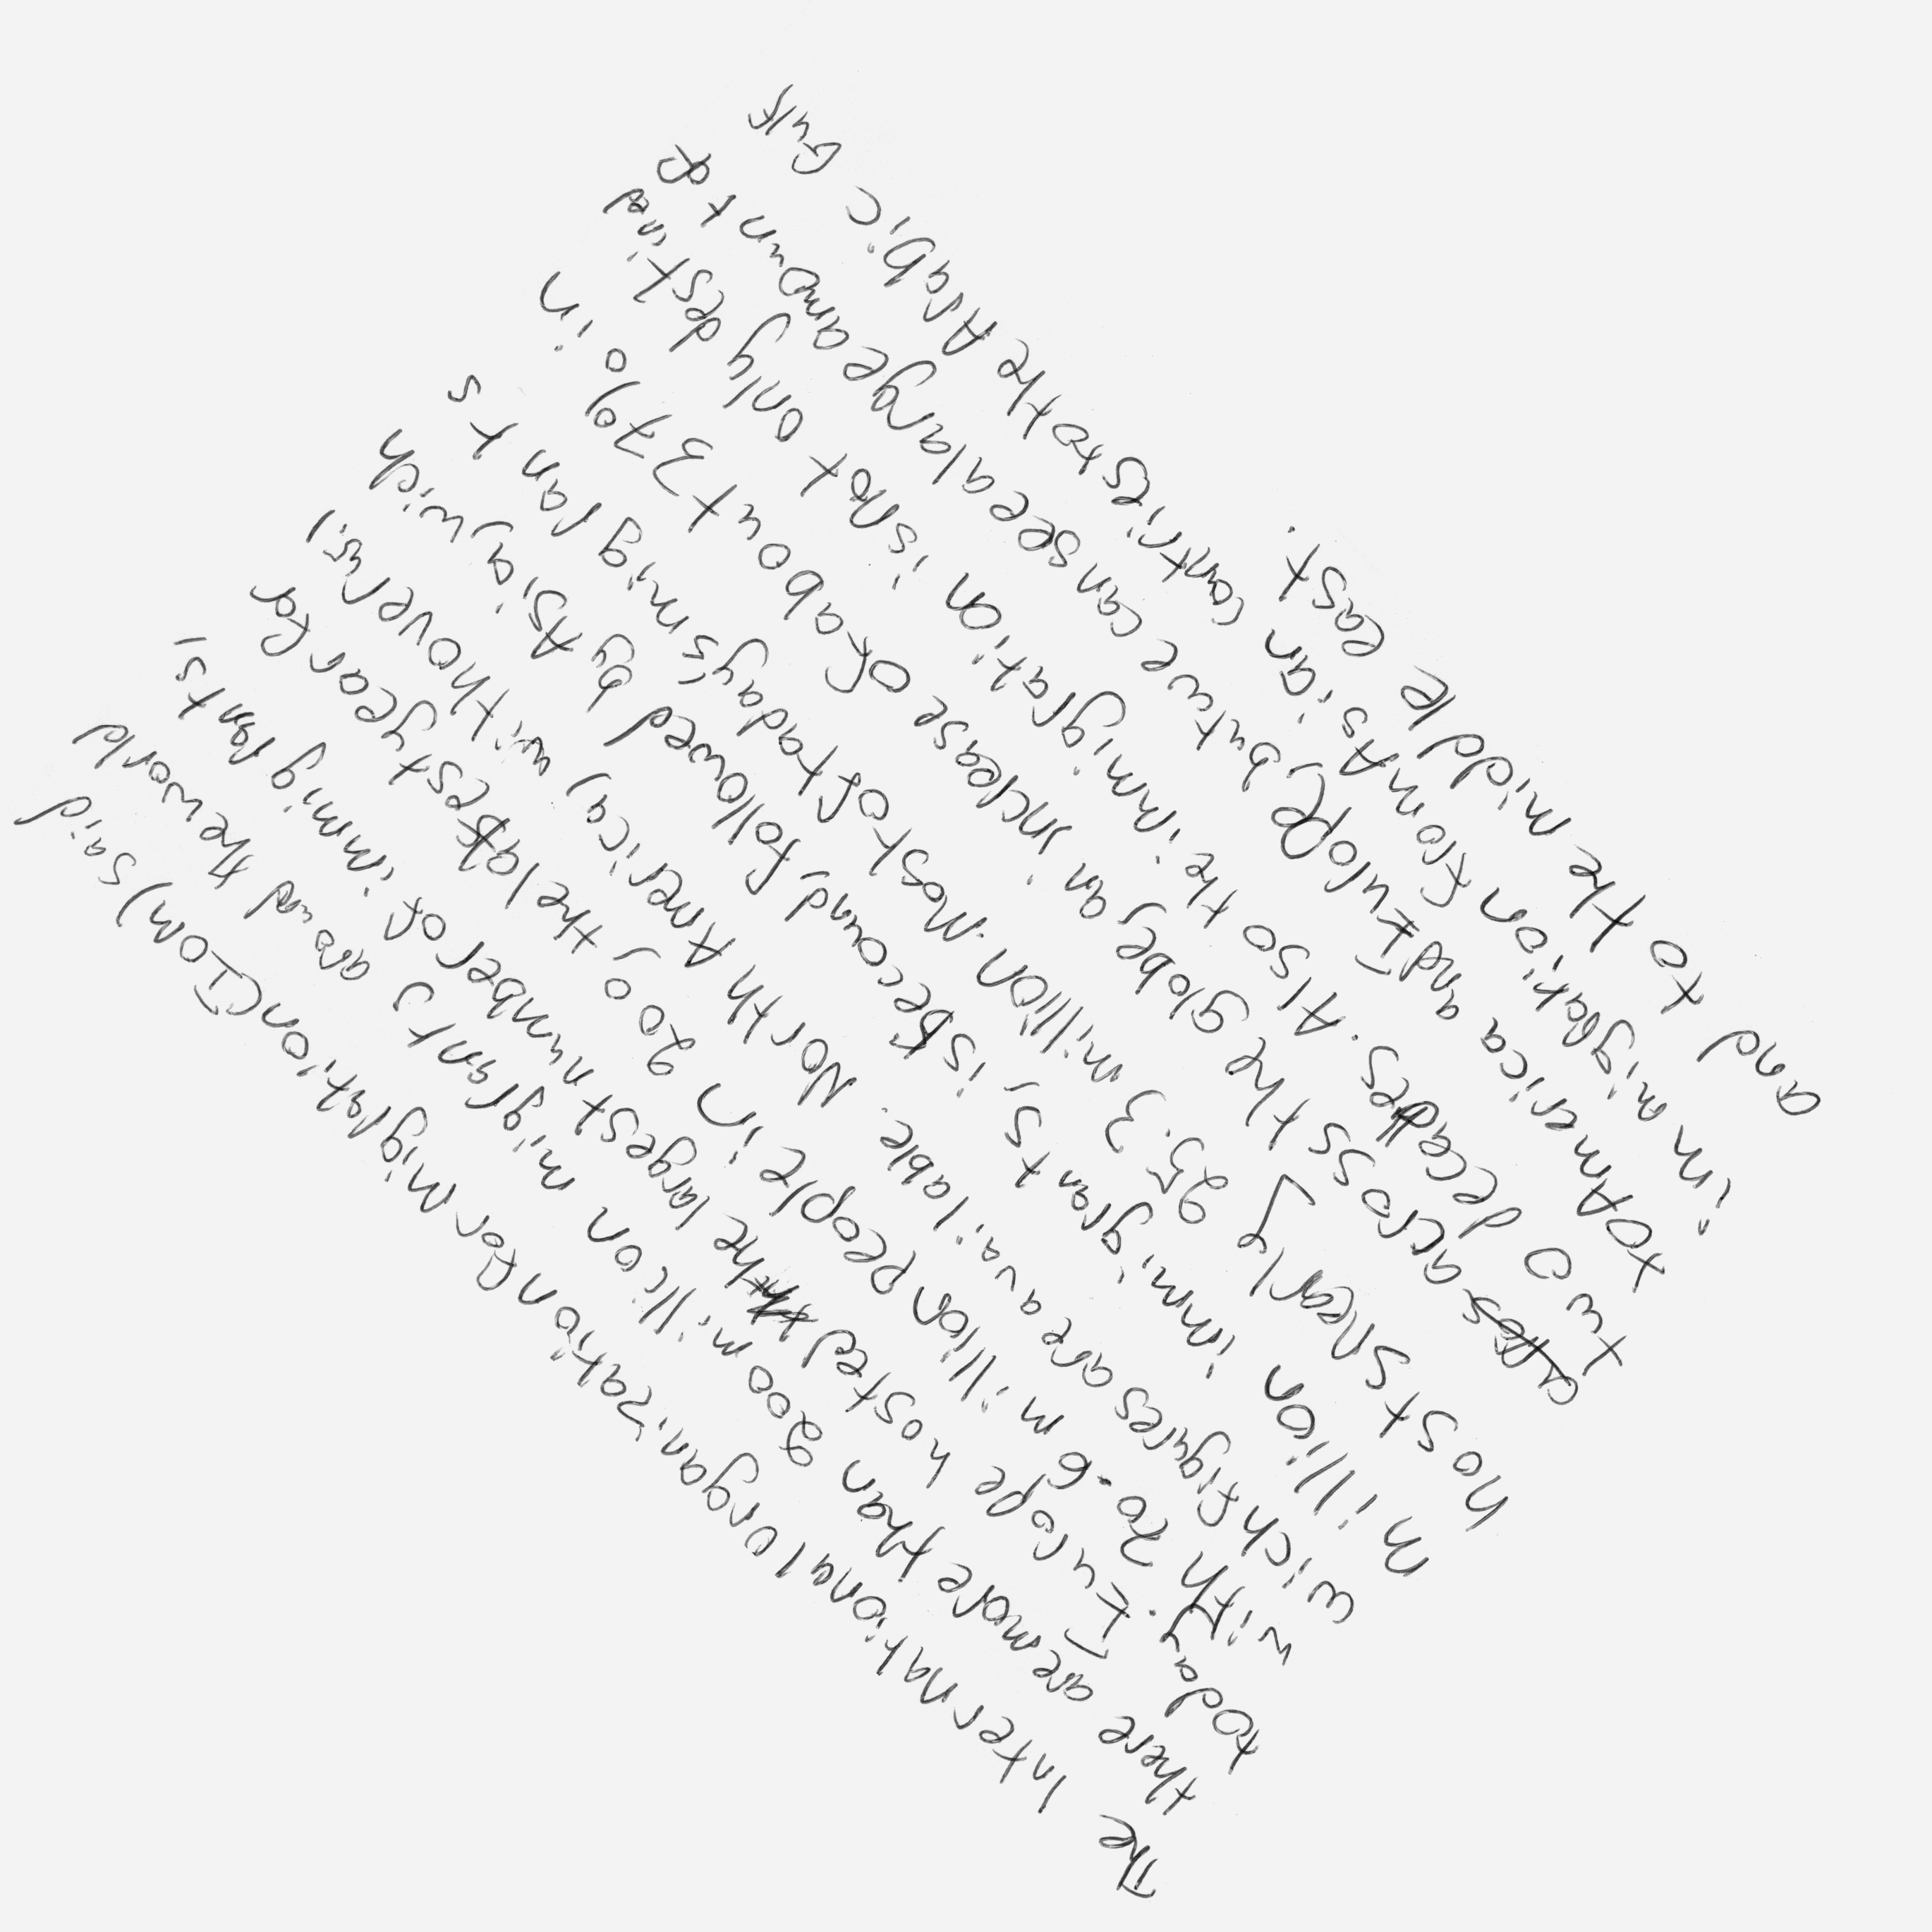 The International organization for Migration (IOM) said
there are more than 200 million migrants around the world
today. Europe hosted the largest number of immigrants,
with 70.6 million people in 2005, the latest year for
wich figures are available. North America, with over 45,3
million immigrants, is second, followed by Asia, wich
hosts nearly 25.3 million. Most of todays immigrants
across the globe, an increase of about 37% in
two decades. Also the immigration is not only destined
to America and Europe, but we can see a large amount of
immigration from Asian countries to the Arabic Gulf
and to the middle east.